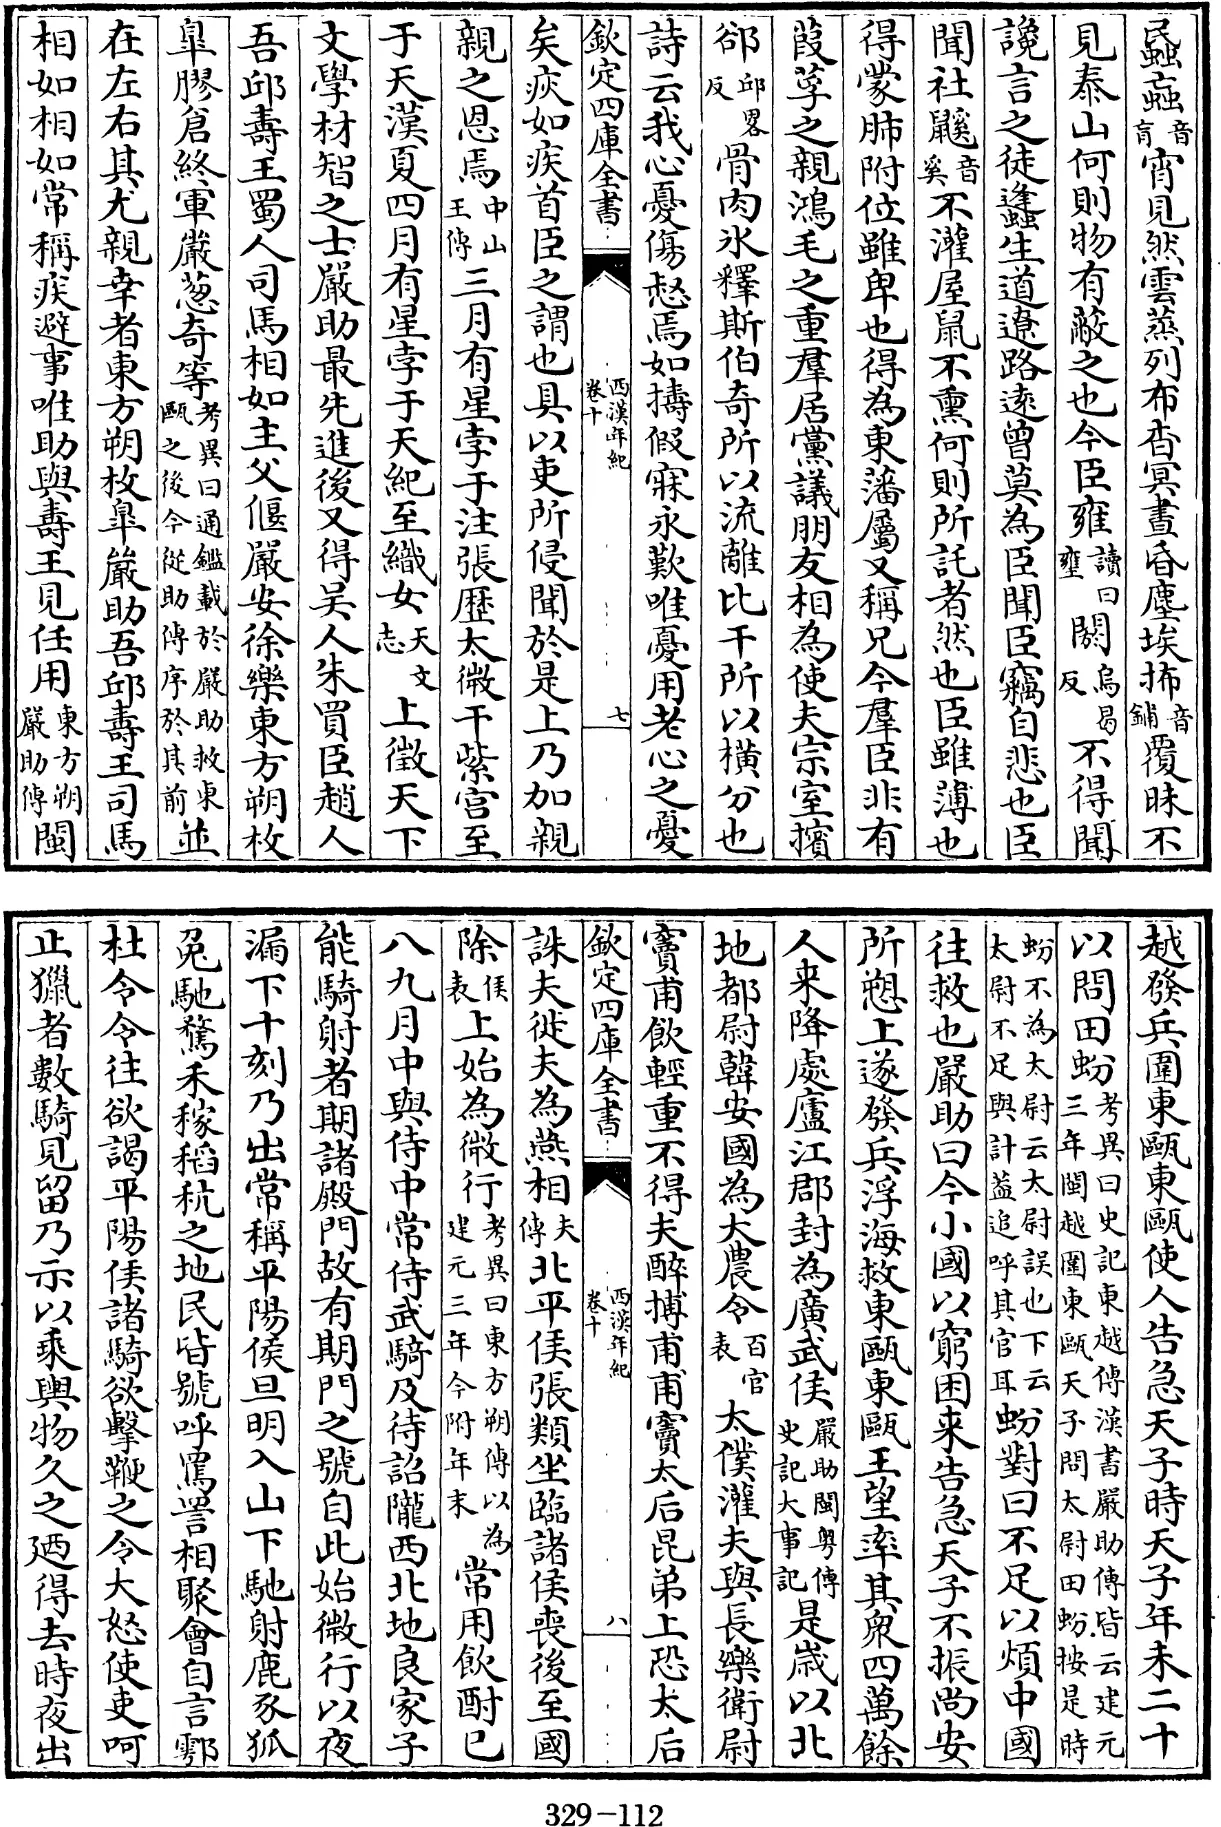 蟲䖟音肓宵見然雲蒸列布杳冥晝昏塵埃抪音鋪覆昧不
見泰山何則物有蔽之也今臣雍讀曰壅閼烏曷反不得聞
讒言之徒逢生道遼路逺曾莫為臣聞臣竊自悲也臣
聞社鼷音奚不灌屋鼠不熏何則所託者然也臣雖薄也
得蒙肺附位雖卑也得為東藩屬又稱兄今羣臣非有
葭莩之親鴻毛之重羣居黨議朋友相為使夫宗室擯
郤邱畧反骨肉氷釋斯伯奇所以流離比干所以橫分也
詩云我心憂傷惄焉如擣假寐永歎唯憂用老心之憂
欽定四庫全書
西漢年紀
卷十
七
矣疢如疾首臣之謂也具以吏所侵聞於是上乃加親
親之恩焉中山王傳三月有星孛于注張歴太微干紫宫至
于天漢夏四月有星孛于天紀至織女天文志上徵天下
文學材智之士嚴助最先進後又得吴人朱買臣趙人
吾邱壽王蜀人司馬相如主父偃嚴安徐樂東方朔枚
臯膠倉終軍嚴葱奇等考異曰通鑑載於嚴助救東甌之後今從助傳序於其前並
在左右其尤親幸者東方朔枚臯嚴助吾邱壽王司馬
相如相如常稱疾避事唯助與壽王見任用東方朔嚴助傳閩
越發兵圍東甌東甌使人告急天子時天子年未二十
以問田蚡考異曰史記東越傳漢書嚴助傳皆云建元三年閩越圍東甌天子問太尉田蚡按是時
蚡不為太尉云太尉誤也下云太尉不足與計葢追呼其官耳蚡對曰不足以煩中國
往救也嚴助曰今小國以窮困来告急天子不振尚安
所愬上遂發兵浮海救東甌東甌王望率其衆四萬餘
人来降處廬江郡封為廣武侯嚴助閩粤傳史記大事記是歳以北
地都尉韓安國為大農令百官表太僕灌夫與長樂衛尉
竇甫飲輕重不得夫醉搏甫甫竇太后昆弟上恐太后
欽定四庫全書
西漢年紀
卷十
八
誅夫徙夫為燕相夫傳北平侯張類坐臨諸侯喪後至國
除侯表上始為微行考異曰東方朔傳以為建元三年今附年末常用飲酎已
八九月中與侍中常侍武騎及待詔隴西北地良家子
能騎射者期諸殿門故有期門之號自此始微行以夜
漏下十刻乃出常稱平陽侯旦明入山下馳射鹿豕狐
兎馳騖禾稼稻秔之地民皆號呼罵詈相聚會自言鄠
杜令令往欲謁平陽侯諸騎欲擊鞭之令大怒使吏呵
止獵者數騎見留乃示以乘輿物久之廼得去時夜出
329-112